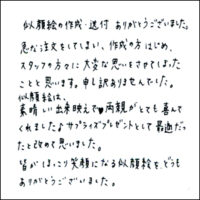 似顔絵の作成・送付 ありがとうございました。
急な注文をしてしまい、作成の方はじめ、
スタッフの方々に大変な思いをさせてしまった
ことと思います。申し訳ありませんでした。
似顔絵は、
素晴しい出来映えで♥両親がとても喜んで
くれました♪サプライズプレゼントとして最適だっ
たと改めて思いました。
皆がほっこり笑顔になる似顔絵を、どうも
ありがとうございました。